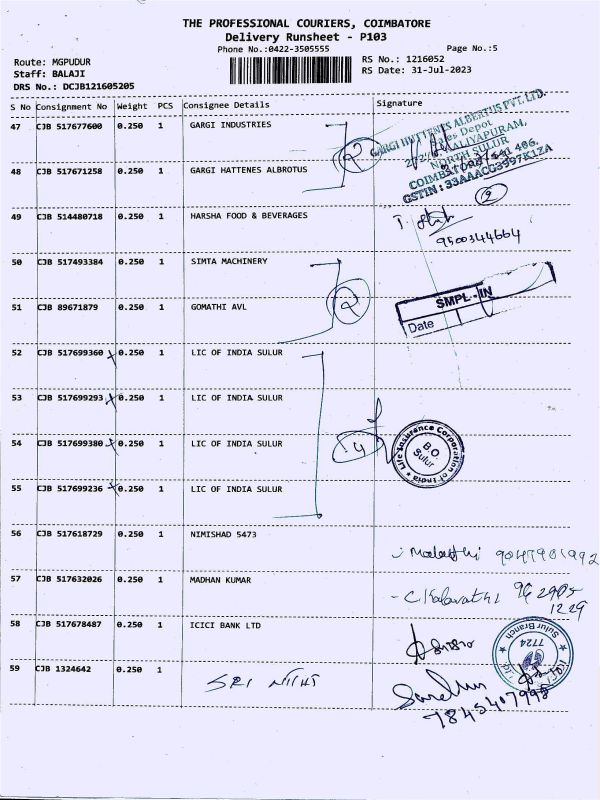 THE PROFESSIONAL COURIERS, COIMBATORE
Delivery Runsheet - P103
Phone No.:0422-3505555
Page No.:5
Route: MGPUDUR
RS No.: 1216052
Staff: BALAJI
RS Date: 31-Jul-2023
DRS No.: DCJB121605205
S No Consignment No Weight PCS Consignee Details Signature
47 CJB 517677600 0.250 1 GARGI INDUSTRIES
GARGI HUTTENES ALBERTUS PVT. LTD.
Sales Depot
NORTH SULUR
GSTIN : 33AAACG3397K1ZA
2
48 CJB 517671258 0.250 1 GARGI HATTENES ALBROTUS
2
49 CJB 514480718 0.250 1 HARSHA FOOD & BEVERAGES
9500344664
50 CJB 517493384 0.250 1 SIMTA MACHINERY
2
SMPL - IN
Date
51 CJB 89671879 0.250 1 GOMATHI AVL
52 CJB 517699360 0.250 1 LIC OF INDIA SULUR
53 CJB 517699293 0.250 1 LIC OF INDIA SULUR
54 CJB 517699380 0.250 1 LIC OF INDIA SULUR
4
Life Insurance Corporation of India
B.O.
Sulur
55 CJB 517699236 0.250 1 LIC OF INDIA SULUR
56 CJB 517618729 0.250 1 NIMISHAD 5473
9047901992
57 CJB 517632026 0.250 1 MADHAN KUMAR
- C. Kalavathi 96 2905
1229
58 CJB 517678487 0.250 1 ICICI BANK LTD
Sulur Branch
7724
59 CJB 1324642 0.250 1
SRI NITHI
7845407998